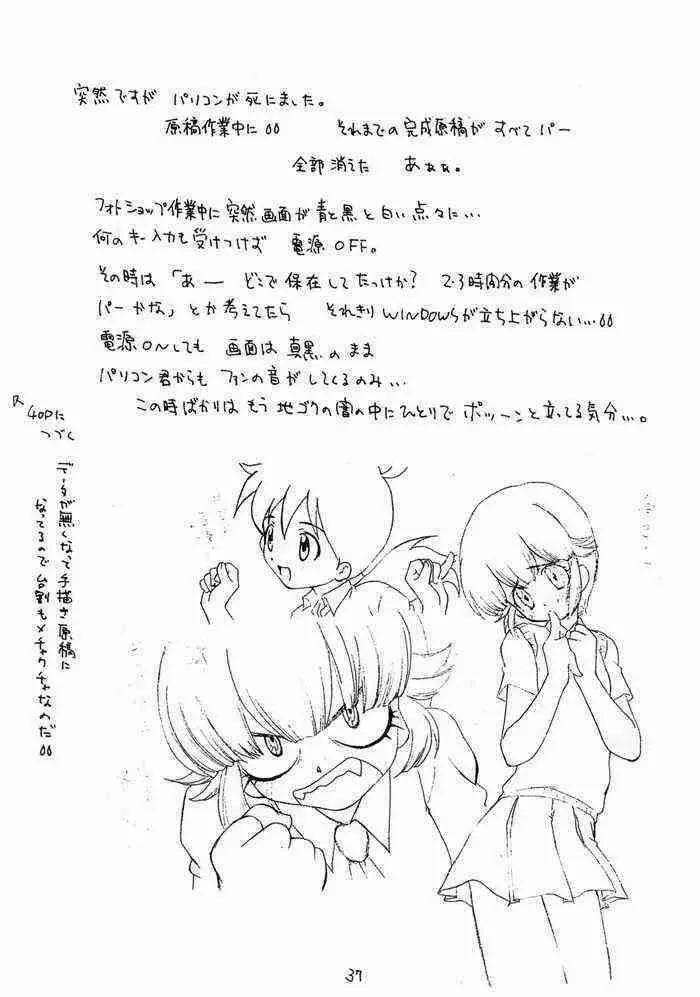 突然ですが パソコンが死にました。
原稿作業中に 00 それまでの完成原稿が すべてパー
全部消えた あぁぁ。
フォトショップ作業中に突然画面が青と黒と白い点々に…
何のキー入力も受けつけば 電源OFF。
その時は「あー どこで保在してたっけか? 2・3時間分の作業が
パーかな」とか考えてたら それきりWINDOWSが立ち上がらない…00
電源ONしても 画面は真黒のまま
パソコン君からも ファンの音がしてくるのみ…
この時ばかりは もう地ゴクの闇の中にひとりで ポツーンと立ってる気分…。
40Pに
つづく
データが無くなって手描き原稿に
なってるので台割もメチャクチャなのだ00
37